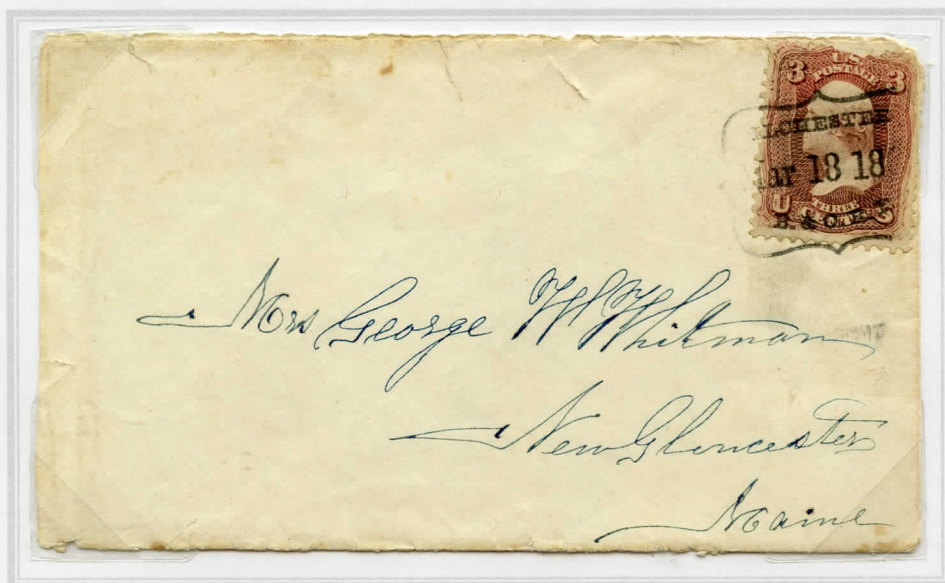 3 U.S. 3
POSTAGE
LCHESTER
ar 18 18
THREE
U CENTS S
B. & O. R. R.
Mrs George W Whitman
New Gloucester
Maine